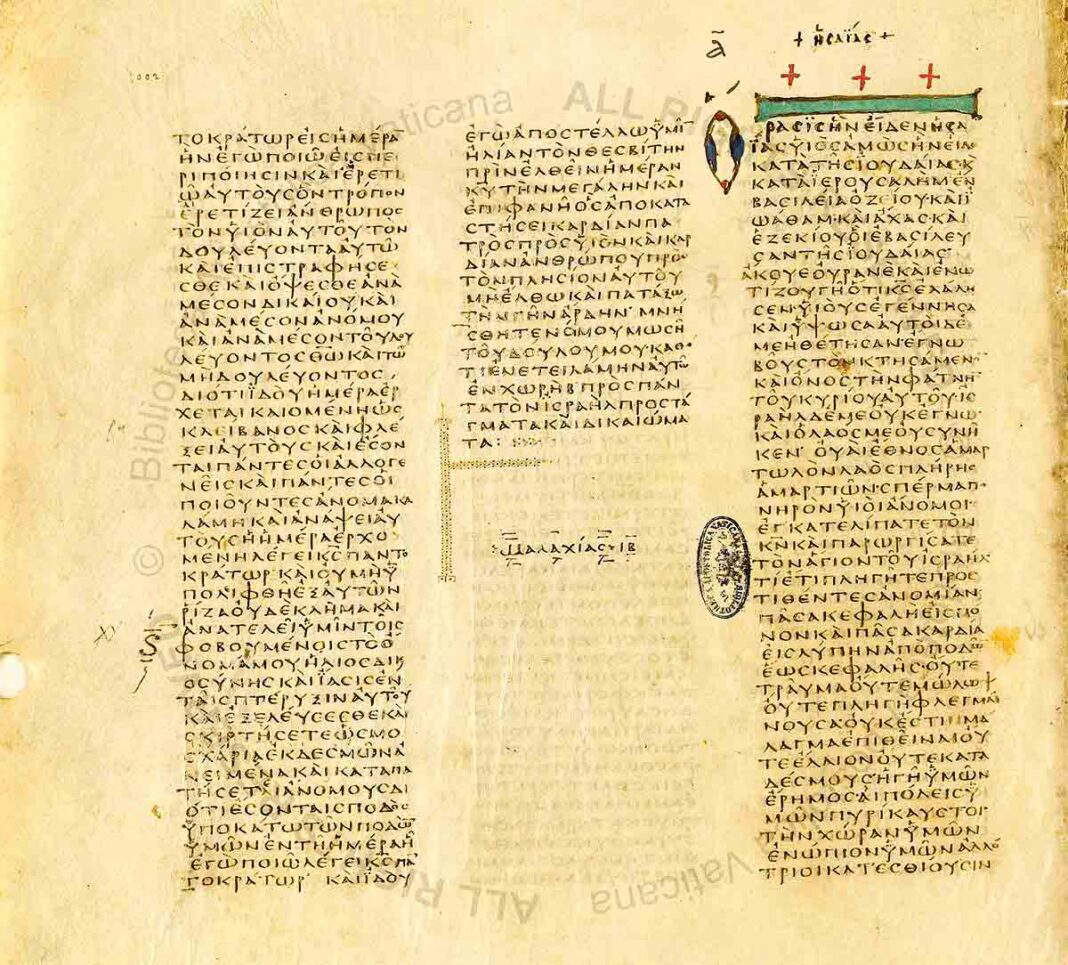 002
ΤΟΚΡΑΤΩΡΕΙϹΗΜΕΡΑ
ΗΝΕΓΩΠΟΙΩΕΙϹΠΕ
ΡΙΠΟΙΗϹΙΝΚΑΙΕΡΕΤΙ
ΩΑΥΤΟΥϹΟΝΤΡΟΠΟΝ
ΕΡΕΤΙΖΕΙΑΝΘΡΩΠΟϹ
ΤΟΝΥΙΟΝΑΥΤΟΥΤΟΝ
ΔΟΥΛΕΥΟΝΤΑΑΥΤΩ
ΚΑΙΕΠΙϹΤΡΑΦΗϹΕ
ϹΘΕΚΑΙΟΨΕϹΘΕΑΝΑ
ΜΕϹΟΝΔΙΚΑΙΟΥΚΑΙ
ΑΝΑΜΕϹΟΝΑΝΟΜΟΥ
ΚΑΙΑΝΑΜΕϹΟΝΤΟΥΔΟΥ
ΛΕΥΟΝΤΟϹΘΩΚΑΙΤΟΥ
ΜΗΔΟΥΛΕΥΟΝΤΟϹ
ΔΙΟΤΙΙΔΟΥΗΜΕΡΑΕΡ
ΧΕΤΑΙΚΑΙΟΜΕΝΗΩϹ
ΚΛΕΙΒΑΝΟϹΚΑΙΦΛΕ
ΞΕΙΑΥΤΟΥϹΚΑΙΕϹΟΝ
ΤΑΙΠΑΝΤΕϹΟΙΑΛΛΟΓΕ
ΝΕΙϹΚΑΙΠΑΝΤΕϹΟΙ
ΠΟΙΟΥΝΤΕϹΑΝΟΜΑΚΑ
ΛΑΜΗΚΑΙΑΝΑΨΕΙΑΥ
ΤΟΥϹΗΗΜΕΡΑΕΡΧΟ
ΜΕΝΗΛΕΓΕΙΚϹΠΑΝΤΟ
ΚΡΑΤΩΡΚΑΙΟΥΜΗΫ
ΠΟΛΙΦΘΗΕΞΑΥΤΩΝ
ΡΙΖΑΟΥΔΕΚΛΗΜΑΚΑΙ
ΑΝΑΤΕΛΕΙΫΜΙΝΤΟΙϹ
ΦΟΒΟΥΜΕΝΟΙϹΤΟΟ
ΝΟΜΑΜΟΥΗΛΙΟϹΔΙΚΑΙ
ΟϹΥΝΗϹΚΑΙΙΑϹΙϹΕΝ
ΤΑΙϹΠΤΕΡΥΞΙΝΑΥΤΟΥ
ΚΑΙΕΞΕΛΕΥϹΕϹΘΕΚΑΙ
ϹΚΙΡΤΗϹΕΤΕΩϹΜΟ
ϹΧΑΡΙΑΕΚΔΕϹΜΩΝΑ
ΝΕΙΜΕΝΑΚΑΙΚΑΤΑΠΑ
ΤΗϹΕΤΑΙΑΝΟΜΟΥϹΔΙ
ΟΤΙΕϹΟΝΤΑΙϹΠΟΔΟϹ
ΫΠΟΚΑΤΩΤΩΝΠΟΔΩΝ
ΫΜΩΝΕΝΤΗΗΜΕΡΑΗ
ΕΓΩΠΟΙΩΛΕΓΕΙΚϹΠΑΝ
ΤΟΚΡΑΤΩΡ ΚΑΙΙΔΟΥ
ΕΓΩΑΠΟϹΤΕΛΛΩΫΜΙΝ
ΗΛΙΑΝΤΟΝΘΕϹΒΙΤΗΝ
ΠΡΙΝΕΛΘΕΙΝΗΜΕΡΑΝ
ΚΥΤΗΝΜΕΓΑΛΗΝΚΑΙ
ΕΠΙΦΑΝΗΟϹΑΠΟΚΑΤΑ
ϹΤΗϹΕΙΚΑΡΔΙΑΝΠΑ
ΤΡΟϹΠΡΟϹΫΙΟΝΚΑΙΚΑΡ
ΔΙΑΝΑΝΘΡΩΠΟΥΠΡΟϹ
ΤΟΝΠΛΗϹΙΟΝΑΥΤΟΥ
ΜΗΕΛΘΩΚΑΙΠΑΤΑΞΩ
ΤΗΝΓΗΝΑΡΔΗΝ ΜΝΗ
ϹΘΗΤΕΝΟΜΟΥΜΩϹΗ
ΤΟΥΔΟΥΛΟΥΜΟΥΚΑΘΟ
ΤΙΕΝΕΤΕΙΛΑΜΗΝΑΥΤΩ
ΕΝΧΩΡΗΒΠΡΟϹΠΑΝ
ΤΑΤΟΝΙϹΡΑΗΛΠΡΟϹΤΑ
ΓΜΑΤΑΚΑΙΔΙΚΑΙΩΜΑ
ΤΑ:
ΜΑΛΑΧΙΑϹ·ΙΒ
Α
+ ΗϹΑΪΑϹ +
ΟΡΑϹΙϹΗΝΕΙΔΕΝΗϹΑ
ΪΑϹΥΙΟϹΑΜΩϹΗΝΕΙΔΕ
ΚΑΤΑΤΗϹΙΟΥΔΑΙΑϹΚΑΙ
ΚΑΤΑΙΕΡΟΥϹΑΛΗΜΕΝ
ΒΑϹΙΛΕΙΑΟΖΕΙΟΥΚΑΙΙ
ΩΑΘΑΜ·ΚΑΙΑΧΑϹ·ΚΑΙ
ΕΖΕΚΙΟΥΟΙΕΒΑϹΙΛΕΥ
ϹΑΝΤΗϹΙΟΥΔΑΙΑϹ
ΑΚΟΥΕΟΥΡΑΝΕΚΑΙΕΝΩ
ΤΙΖΟΥΓΗΟΤΙΚϹΕΛΑΛΗ
ϹΕΝ·ΥΙΟΥϹΕΓΕΝΝΗϹΑ
ΚΑΙΫΨΩϹΑΑΥΤΟΙΔΕ
ΜΕΗΘΕΤΗϹΑΝΕΓΝΩ
ΒΟΥϹΤΟΝΚΤΗϹΑΜΕΝΟΝ
ΚΑΙΟΝΟϹΤΗΝΦΑΤΝΗΝ
ΤΟΥΚΥΡΙΟΥΑΥΤΟΥΙϹ
ΡΑΗΛΔΕΜΕΟΥΚΕΓΝΩ
ΚΑΙΟΛΑΟϹΜΕΟΥϹΥΝΗ
ΚΕΝ· ΟΥΑΙΕΘΝΟϹΑΜΑΡ
ΤΩΛΟΝΛΑΟϹΠΛΗΡΗϹ
ΑΜΑΡΤΙΩΝ·ϹΠΕΡΜΑΠΟ
ΝΗΡΟΝΫΙΟΙΑΝΟΜΟΙ·
ΕΓΚΑΤΕΛΙΠΑΤΕΤΟΝ
ΚΝΚΑΙΠΑΡΩΡΓΙϹΑΤΕ
ΤΟΝΑΓΙΟΝΤΟΥΙϹΡΑΗΛ
ΤΙΕΤΙΠΛΗΓΗΤΕΠΡΟϹ
ΤΙΘΕΝΤΕϹΑΝΟΜΙΑΝ
ΠΑϹΑΚΕΦΑΛΗΕΙϹΠΟ
ΝΟΝΚΑΙΠΑϹΑΚΑΡΔΙΑ
ΕΙϹΛΥΠΗΝΑΠΟΠΟΔΩΝ
ΕΩϹΚΕΦΑΛΗϹ·ΟΥΤΕ
ΤΡΑΥΜΑΟΥΤΕΜΩΛΩΨ
ΟΥΤΕΠΛΗΓΗΦΛΕΓΜΑΙ
ΝΟΥϹΑΟΥΚΕϹΤΙΝΜΑ
ΛΑΓΜΑΕΠΙΘΕΙΝΑΙΟΥ
ΤΕΕΛΑΙΟΝΟΥΤΕΚΑΤΑ
ΔΕϹΜΟΥϹ·ΗΓΗΫΜΩΝ
ΕΡΗΜΟϹ·ΑΙΠΟΛΕΙϹΫ
ΜΩΝΠΥΡΙΚΑΥϹΤΟΙ·
ΤΗΝΧΩΡΑΝΫΜΩΝ
ΕΝΩΠΙΟΝΫΜΩΝΑΛΛΟ
ΤΡΙΟΙΚΑΤΕϹΘΙΟΥϹΙΝ
© Biblioteca
Vaticana
ALL RI